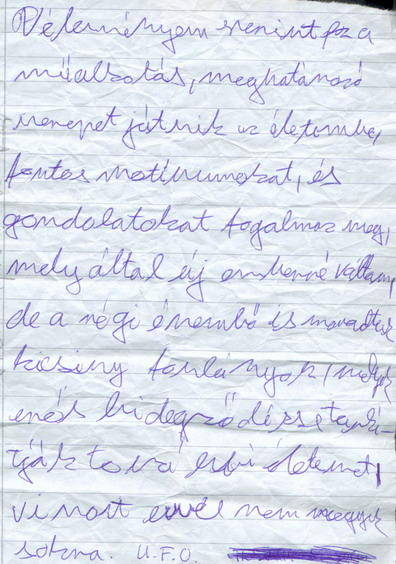 Véleményem szerint ez a
műalkotás, meghatározó
szerepet játszik az életembe,
fontos motívumokat, és
gondolatokat fogalmaz meg,
mely által új emberré váltam,
de a régi énemből is maradtak
kicsiny foszlányok, melyek
erős
tovább életemet,
viszont evvel nem megyek
sokra. U.F.O.